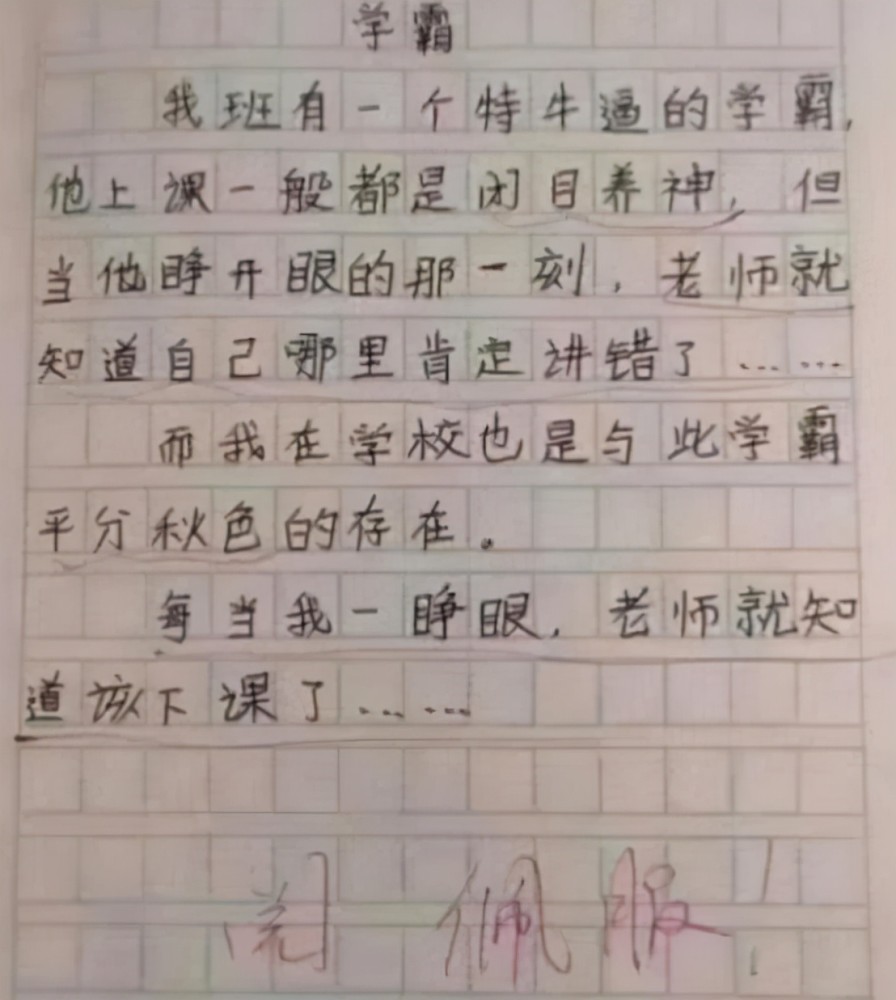 学霸
我班有一个特牛逼的学霸,
他上课一般都是闭目养神,但
当他睁开眼的那一刻,老师就
知道自己哪里肯定讲错了……
而我在学校也是与此学霸
平分秋色的存在。
每当我一睁眼,老师就知
道该下课了……
阅 佩服!